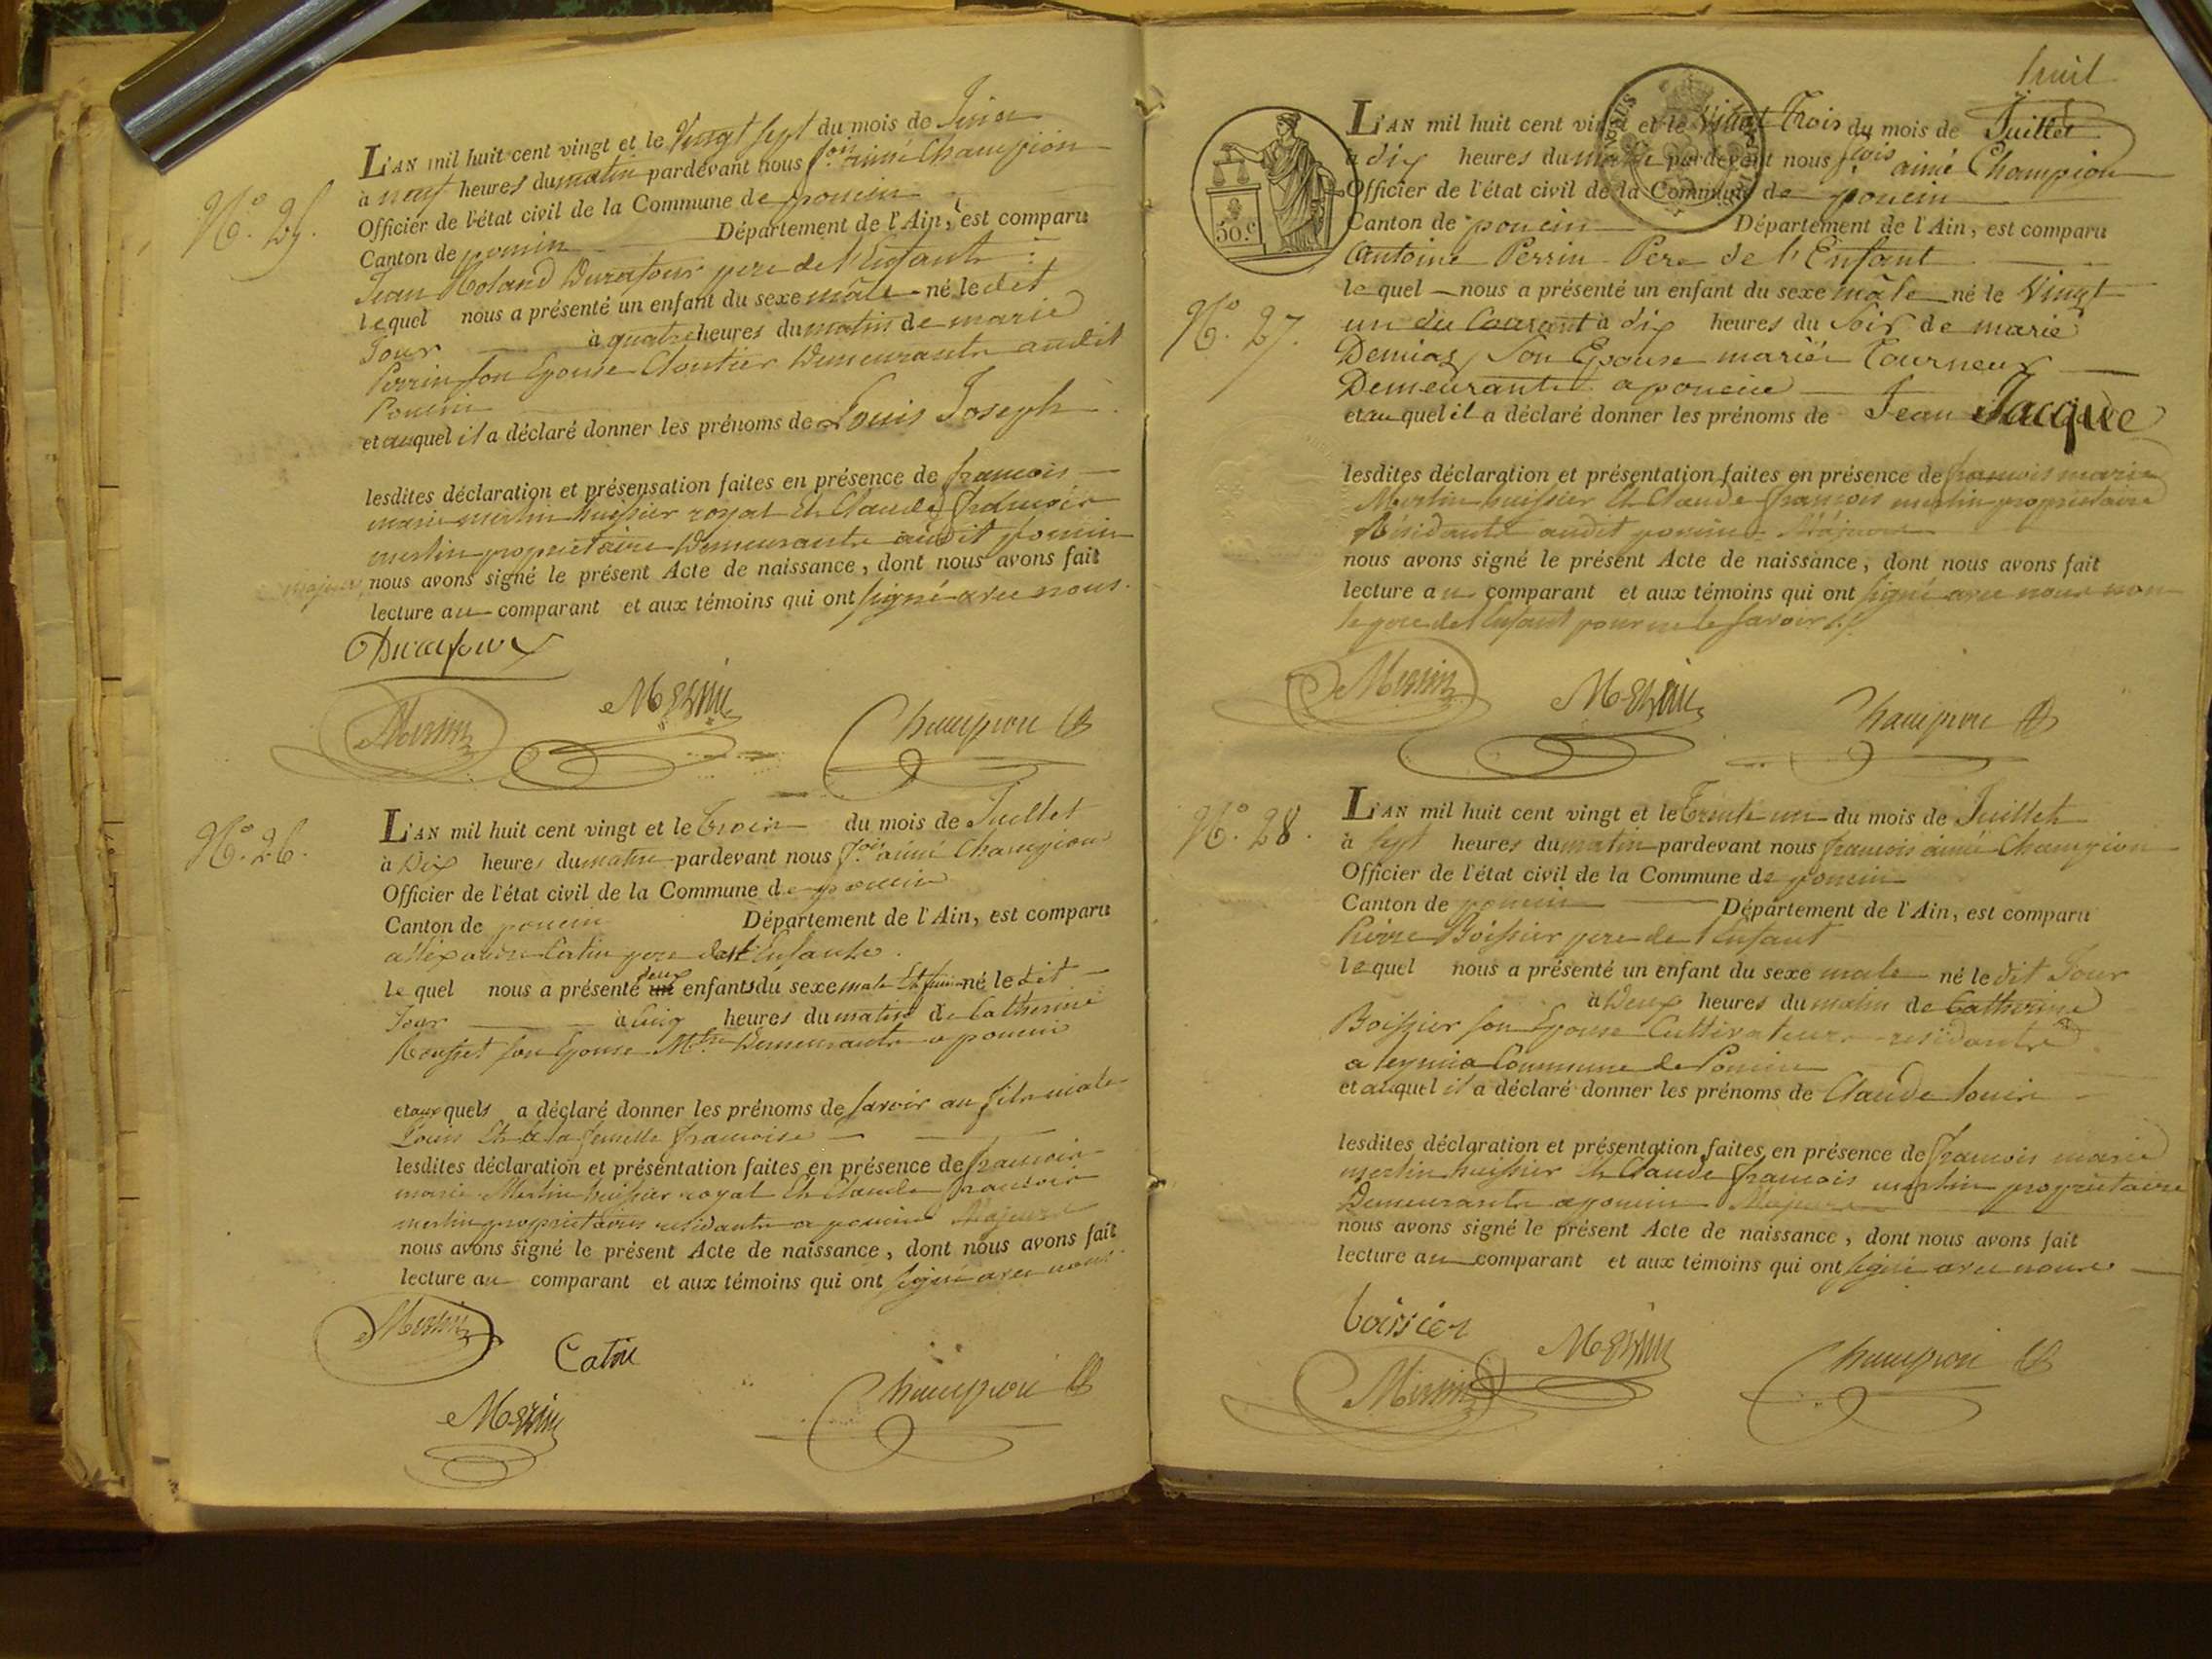 N.° 25.
L'AN mil huit cent vingt et le Vingt Sept du mois de Juin
à neuf heures du matin pardevant nous f.ois aimé Champion
Officier de l'état civil de la Commune de poncin
Canton de poncin Département de l'Ain, est comparu
Jean Roland Durafour pere de l'Enfant
lequel nous a présenté un enfant du sexe mâle né le dit
Jour à quatre heures du matin de marie
Perrin son Epouse Cloutier Demeurants audit
Poncin
et auquel il a déclaré donner les prénoms de Louis Joseph
lesdites déclaration et présensation faites en présence de francois
marie merlin huissier royal Et Claude francois
merlin proprietaire Demeurants audit poncin
majeurs, nous avons signé le présent Acte de naissance, dont nous avons fait
lecture au comparant et aux témoins qui ont signé avec nous.
Durafour
Merlin
Merlin
Champion
N.° 26.
L'AN mil huit cent vingt et le trois du mois de Juillet
à Dix heures du matin pardevant nous f.ois aimé Champion
Officier de l'état civil de la Commune de poncin
Canton de poncin Département de l'Ain, est comparu
Catin pere de l'Enfants
le quel nous a présenté deux enfants du sexe male Et né le dit
Jour à Cinq heures du matin de Catherine
son Epouse Demeurants a poncin
et aux quels a déclaré donner les prénoms de savoir au male
Louis Et a la femelle francoise
lesdites déclaration et présentation faites en présence de francois
marie Merlin huissier royal Et Claude francois
merlin proprietaires residants a poncin Majeurs
nous avons signé le présent Acte de naissance, dont nous avons fait
lecture au comparant et aux témoins qui ont signé avec nous
Merlin
Catin
Merlin
Champion
huit
50.c
L'AN mil huit cent vingt et le Vingt Trois du mois de Juillet
à dix heures du matin pardevant nous f.cois aimé Champion
Officier de l'état civil de la Commune de poncin
Canton de poncin Département de l'Ain, est comparu
Antoine Perrin Pere de l'Enfant
le quel nous a présenté un enfant du sexe mâle né le Vingt
N.° 27.
un du Courant à dix heures du Soir de marie
Son Epouse mariés Tourneur
Demeurants a poncin
et au quel il a déclaré donner les prénoms de Jean Jacque
lesdites déclaration et présentation faites en présence de francois marie
Merlin huissier Et Claude francois merlin proprietaire
Résidants audit poncin Majeurs
nous avons signé le présent Acte de naissance, dont nous avons fait
lecture au comparant et aux témoins qui ont signé avec nous non
le pere de l'Enfant pour ne le savoir
Merlin
Merlin
Champion
N.° 28.
L'AN mil huit cent vingt et le trente un du mois de Juillet
à sept heures du matin pardevant nous francois aimé Champion
Officier de l'état civil de la Commune de poncin
Canton de poncin Département de l'Ain, est comparu
Pierre Boissier pere de l'Enfant
lequel nous a présenté un enfant du sexe male né le dit Jour
à Deux heures du matin de Catherine
Boissier son Epouse Cultivateurs residants
a leymia Commune de Poncin
et auquel il a déclaré donner les prénoms de Claude Louis
lesdites déclaration et présentation faites en présence de francois marie
merlin huissier Et Claude francois merlin proprietaire
Demeurants a poncin Majeurs
nous avons signé le présent Acte de naissance, dont nous avons fait
lecture au comparant et aux témoins qui ont signé avec nous
boissier
Merlin
Merlin
Champion